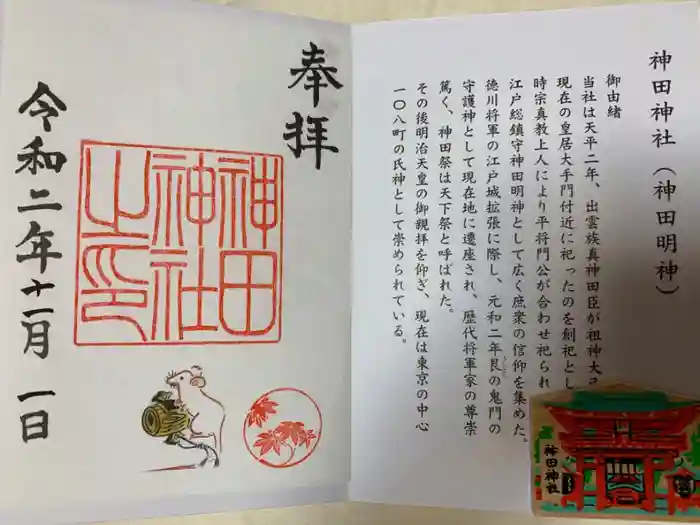 神田神社(神田明神)
御由緒
当社は天平二年、出雲族真神田臣が祖神大己
現在の皇居大手門付近に祀ったのを創祀とし
時宗真教上人により平将門公が合わせ祀られ
江戸総鎮守神田明神として広く庶衆の信仰を集めた。
徳川将軍の江戸城拡張に際し、元和二年艮の鬼門の
守護神として現在地に遷座され、歴代将軍家の尊崇
篤く、神田祭は天下祭と呼ばれた。
その後明治天皇の御親拝を仰ぎ、現在は東京の中心
一〇八町の氏神として崇められている。
奉拝
神田
神社
之印
令和二年十一月一日
神田神社